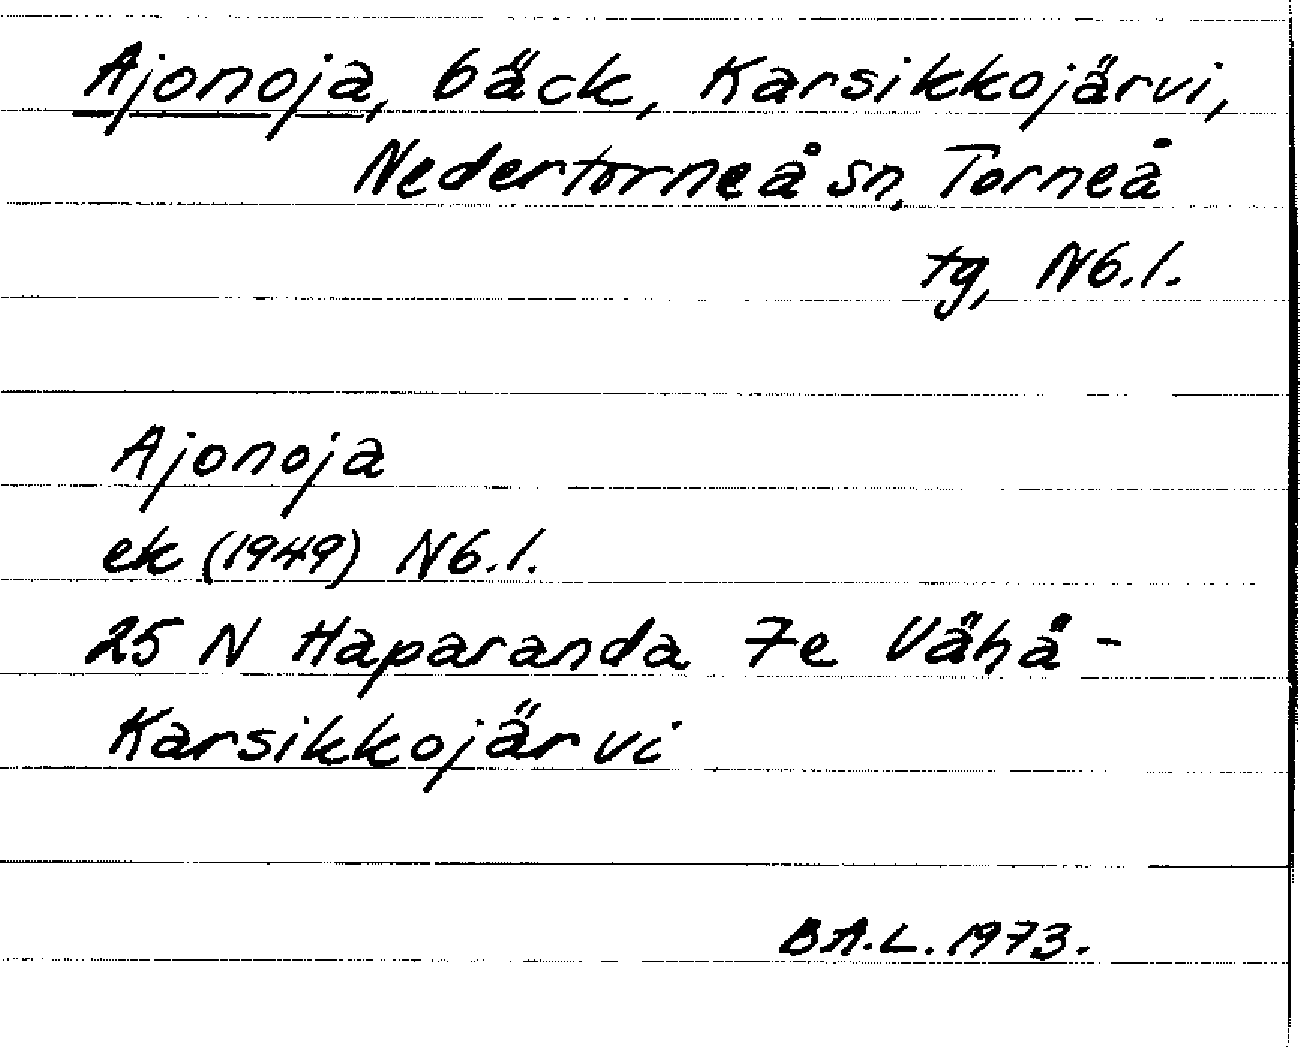 Ajonoja, bäck, Karsikkojärvi,
Nedertorneå sn, Torneå
tg, Nb.l.
Ajonoja
ek (1949) Nb.l.
25 N Haparanda 7e Vähä-
Karsikkojärvi
B.A.L. 1973.